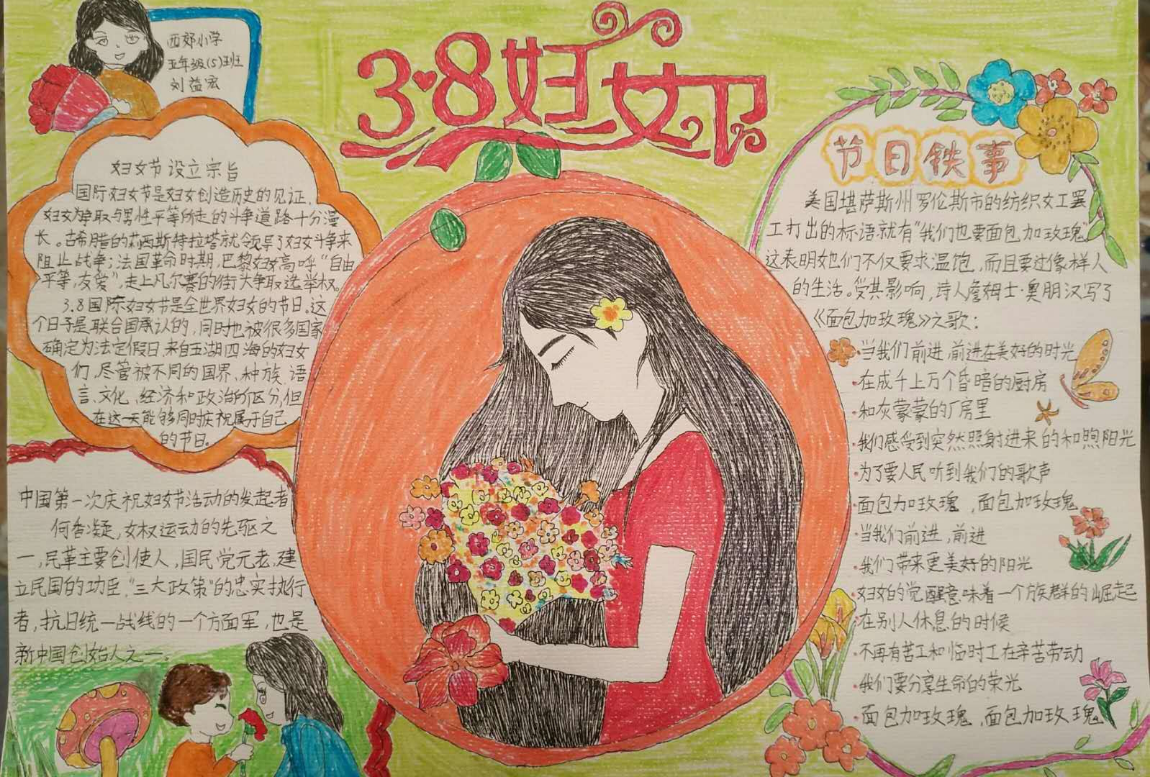 西郊小学
五年级(5)班
刘益宏
3·8妇女节
妇女节设立宗旨
国际妇女节是妇女创造历史的见证,
妇女为争取与男性平等所走的斗争道路十分漫
长。古希腊的莉西斯特拉塔就领导了妇女斗争来
阻止战争;法国革命时期,巴黎妇女高呼“自由
平等,友爱”,走上凡尔赛的街头争取选举权。
3.8国际妇女节是全世界妇女的节日。这
个日子是联合国承认的,同时也被很多国家
确定为法定假日,来自五湖四海的妇女
们,尽管被不同的国界、种族、语
言、文化、经济和政治所区分,但
在这一天能够同时庆祝属于自己
的节日。
中国第一次庆祝妇女节活动的发起者
何香凝,女权运动的先驱之
一,民革主要创使人,国民党元老,建
立民国的功臣,“三大政策”的忠实执行
者,抗日统一战线的一个方面军,也是
新中国创始人之一。
节日轶事
美国堪萨斯州罗伦斯市的纺织女工罢
工打出的标语就有“我们也要面包加玫瑰”
这表明她们不仅要求温饱,而且要过像样人
的生活。受其影响,诗人詹姆士·奥朋汉写了
《面包加玫瑰》之歌:
·当我们前进,前进在美好的时光
·在成千上万个昏暗的厨房
·和灰蒙蒙的厂房里
·我们感受到突然照射进来的和煦阳光
·为了要人民听到我们的歌声
·面包加玫瑰,面包加玫瑰
·当我们前进,前进
·我们带来更美好的阳光
·妇女的觉醒意味着一个族群的崛起
·在别人休息的时候
·不再有苦工和临时工在辛苦劳动
·我们要分享生命的荣光
·面包加玫瑰,面包加玫瑰